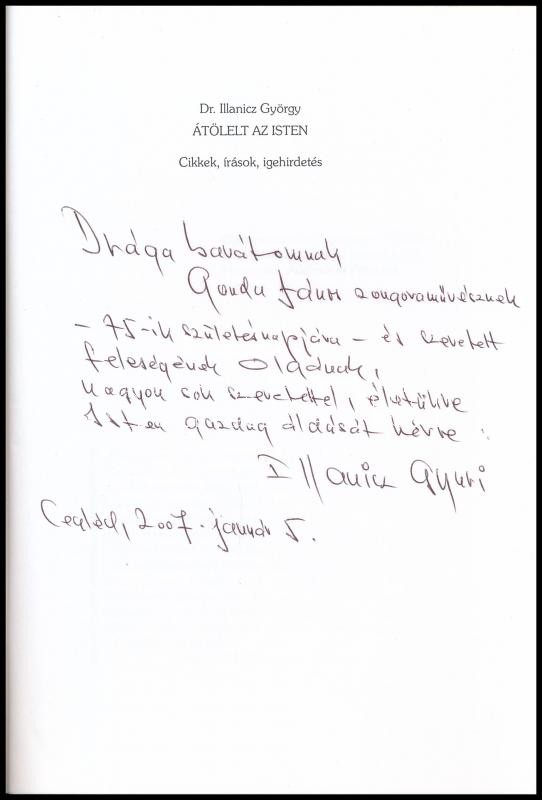 Dr. Illanicz György
ÁTÖLELT AZ ISTEN
Cikkek, írások, igehirdetés
Drága barátomnak
Gonda János zongoraművésznek
– 75-ik születésnapjára – és szeretett
feleségének
nagyon sok szeretettel, életükre
Isten gazdag áldását kérve :
Illanicz Gyuri
Cegléd, 2007. január 5.